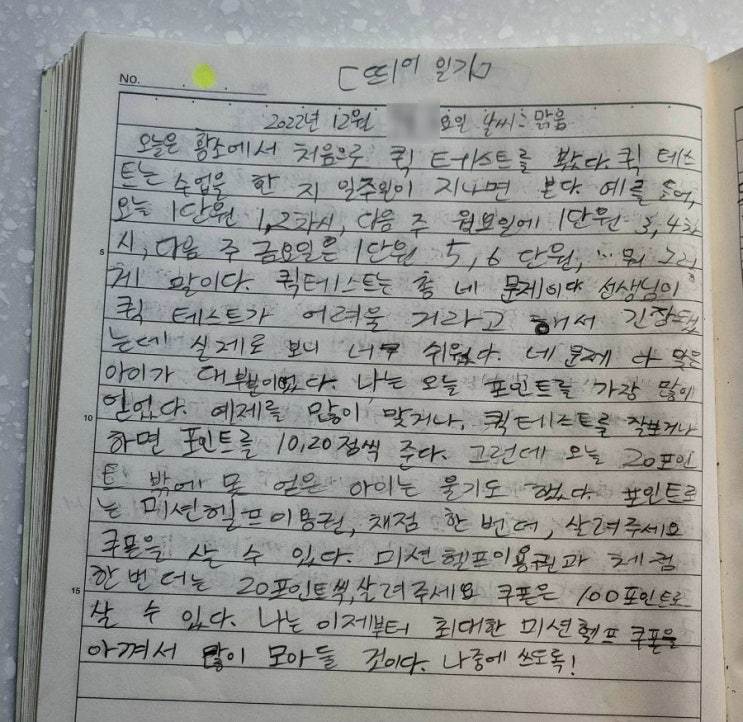 No.
[띄어 일기]
2022년 12월 요일 날씨: 맑음
오늘은 황소에서 처음으로 퀵 테스트를 봤다. 퀵 테스
트는 수업을 한 지 일주일이 지나면 본다. 예를 들어,
오늘 1단원 1,2차시, 다음 주 월요일에 1단원 3,4차
5
시, 다음 주 금요일은 1단원 5,6 단원, … 뭐 그렇
게 말이다. 퀵테스트는 총 네 문제이다 선생님이
퀵 테스트가 어려울 거라고 해서 긴장했
는데 실제로 보니 너무 쉬웠다. 네 문제 다 맞은
아이가 대부분이었다. 나는 오늘 포인트를 가장 많이
10
얻었다. 예제를 많이 맞거나, 퀵테스트를 잘보거나
하면 포인트를 10,20점씩 준다. 그런데 오늘 20포인
트 밖에 못 얻은 아이는 울기도 했다. 포인트로
는 미션헬프이용권, 채점 한 번 더, 살려주세요
쿠폰을 살 수 있다. 미션 헬프이용권과 채점
15
한 번 더는 20포인트씩, 살려주세요 쿠폰은 100포인트로
살 수 있다. 나는 이제부터 최대한 미션헬프 쿠폰을
아껴서 많이 모아둘 것이다. 나중에 쓰도록!